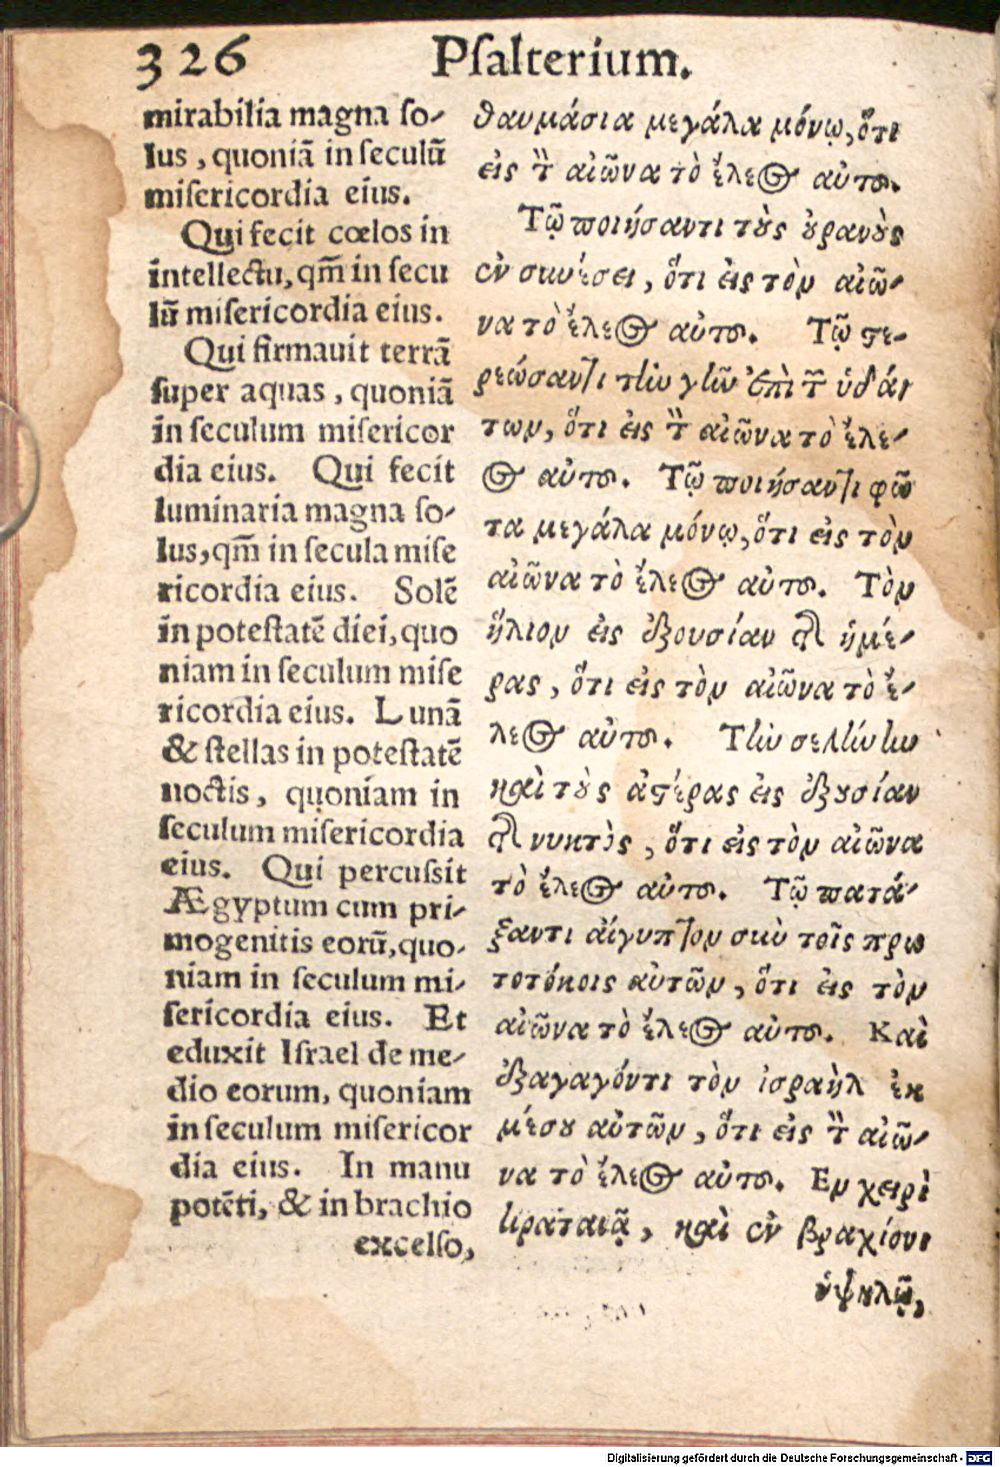 326 Psalterium.
mirabilia magna so-
lus, quoniã in seculũ
misericordia eius.
Qui fecit cœlos in
intellectu, qm̃ in secu
lũ misericordia eius.
Qui firmauit terrã
super aquas, quoniã
in seculum misericor
dia eius. Qui fecit
luminaria magna so-
lus, qm̃ in secula mise
ricordia eius. Solẽ
in potestatẽ diei, quo
niam in seculum mise
ricordia eius. Lunã
& stellas in potestatẽ
noctis, quoniam in
seculum misericordia
eius. Qui percussit
Ægyptum cum pri-
mogenitis eorũ, quo-
niam in seculum mi-
sericordia eius. Et
eduxit Israel de me-
dio eorum, quoniam
in seculum misericor
dia eius. In manu
potẽti, & in brachio
excelso,
θαυμάσια μεγάλα μόνῳ, ὅτι
εἰς τὸν αἰῶνα τὸ ἔλεος αὐτοῦ.
Τῷ ποιήσαντι τοὺς οὐρανοὺς
ἐν συνέσει, ὅτι εἰς τὸν αἰῶ-
να τὸ ἔλεος αὐτοῦ. Τῷ στε-
ρεώσαντι τὴν γῆν ἐπὶ τῶν ὑδά-
των, ὅτι εἰς τὸν αἰῶνα τὸ ἔλε-
ος αὐτοῦ. Τῷ ποιήσαντι φῶ
τα μεγάλα μόνῳ, ὅτι εἰς τὸν
αἰῶνα τὸ ἔλεος αὐτοῦ. Τὸν
ἥλιον εἰς ἐξουσίαν τῆς ἡμέ-
ρας, ὅτι εἰς τὸν αἰῶνα τὸ ἔ-
λεος αὐτοῦ. Τὴν σελήνην
καὶ τοὺς ἀστέρας εἰς ἐξουσίαν
τῆς νυκτὸς, ὅτι εἰς τὸν αἰῶνα
τὸ ἔλεος αὐτοῦ. Τῷ πατά-
ξαντι αἴγυπτον σὺν τοῖς πρω
τοτόκοις αὐτῶν, ὅτι εἰς τὸν
αἰῶνα τὸ ἔλεος αὐτοῦ. Καὶ
ἐξαγαγόντι τὸν ἰσραὴλ ἐκ
μέσου αὐτῶν, ὅτι εἰς τὸν αἰῶ-
να τὸ ἔλεος αὐτοῦ. Εν χειρὶ
κραταιᾷ, καὶ ἐν βραχίονι
ὑψηλῷ,
Digitalisierung gefördert durch die Deutsche Forschungsgemeinschaft - DFG